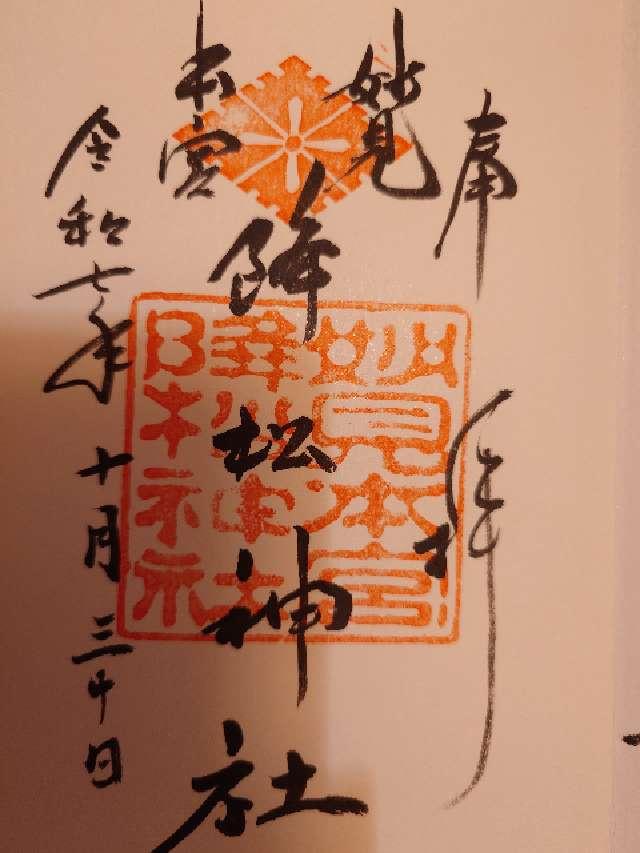 奉拝
妙見
本宮
降松神社
令和七年十月三十日
妙見本宮
降松神社